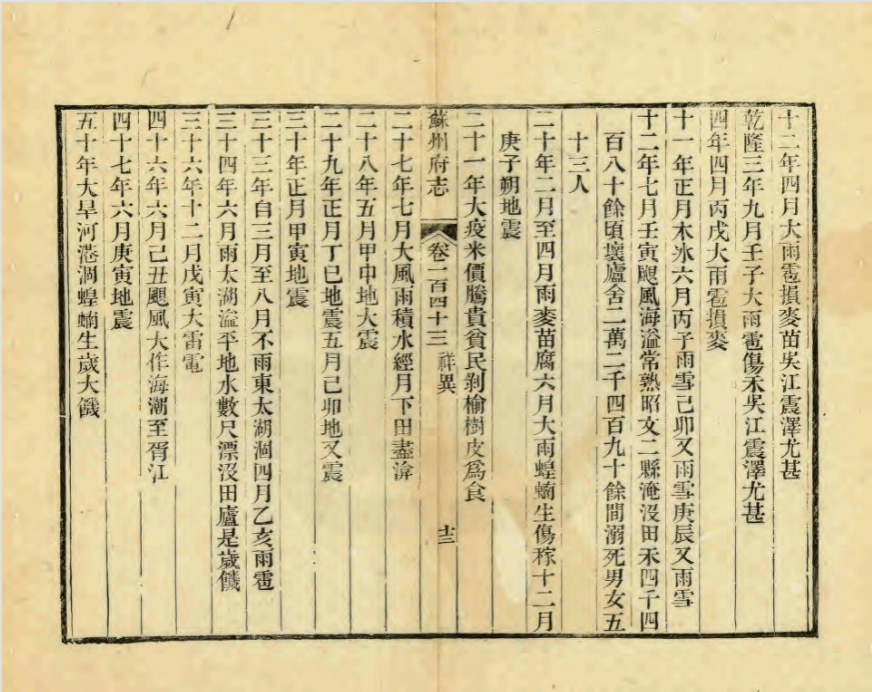 十二年四月大雨雹損麥苗吳江震澤尤甚
乾隆三年九月壬子大雨雹傷禾吳江震澤尤甚
四年四月丙戌大雨雹損麥
十一年正月木氷六月丙子雨雪己卯又雨雪庚辰又雨雪
十二年七月壬寅颶風海溢常熟昭文二縣淹沒田禾四千四
百八十餘頃壞廬舍二萬二千四百九十餘間溺死男女五
十三人
二十年二月至四月雨麥苗腐六月大雨蝗蝻生傷稼十二月
庚子朔地震
二十一年大疫米價騰貴貧民剥榆樹皮爲食
蘇州府志 卷一百四十三 祥異 十三
二十七年七月大風雨積水經月下田盡渰
二十八年五月甲申地大震
二十九年正月丁巳地震五月己卯地又震
三十年正月甲寅地震
三十三年自三月至八月不雨東太湖涸四月乙亥雨雹
三十四年六月雨太湖溢平地水數尺漂沒田廬是歲饑
三十六年十二月戊寅大雷電
四十六年六月己丑颶風大作海潮至胥江
四十七年六月庚寅地震
五十年大旱河港涸蝗蝻生歲大饑